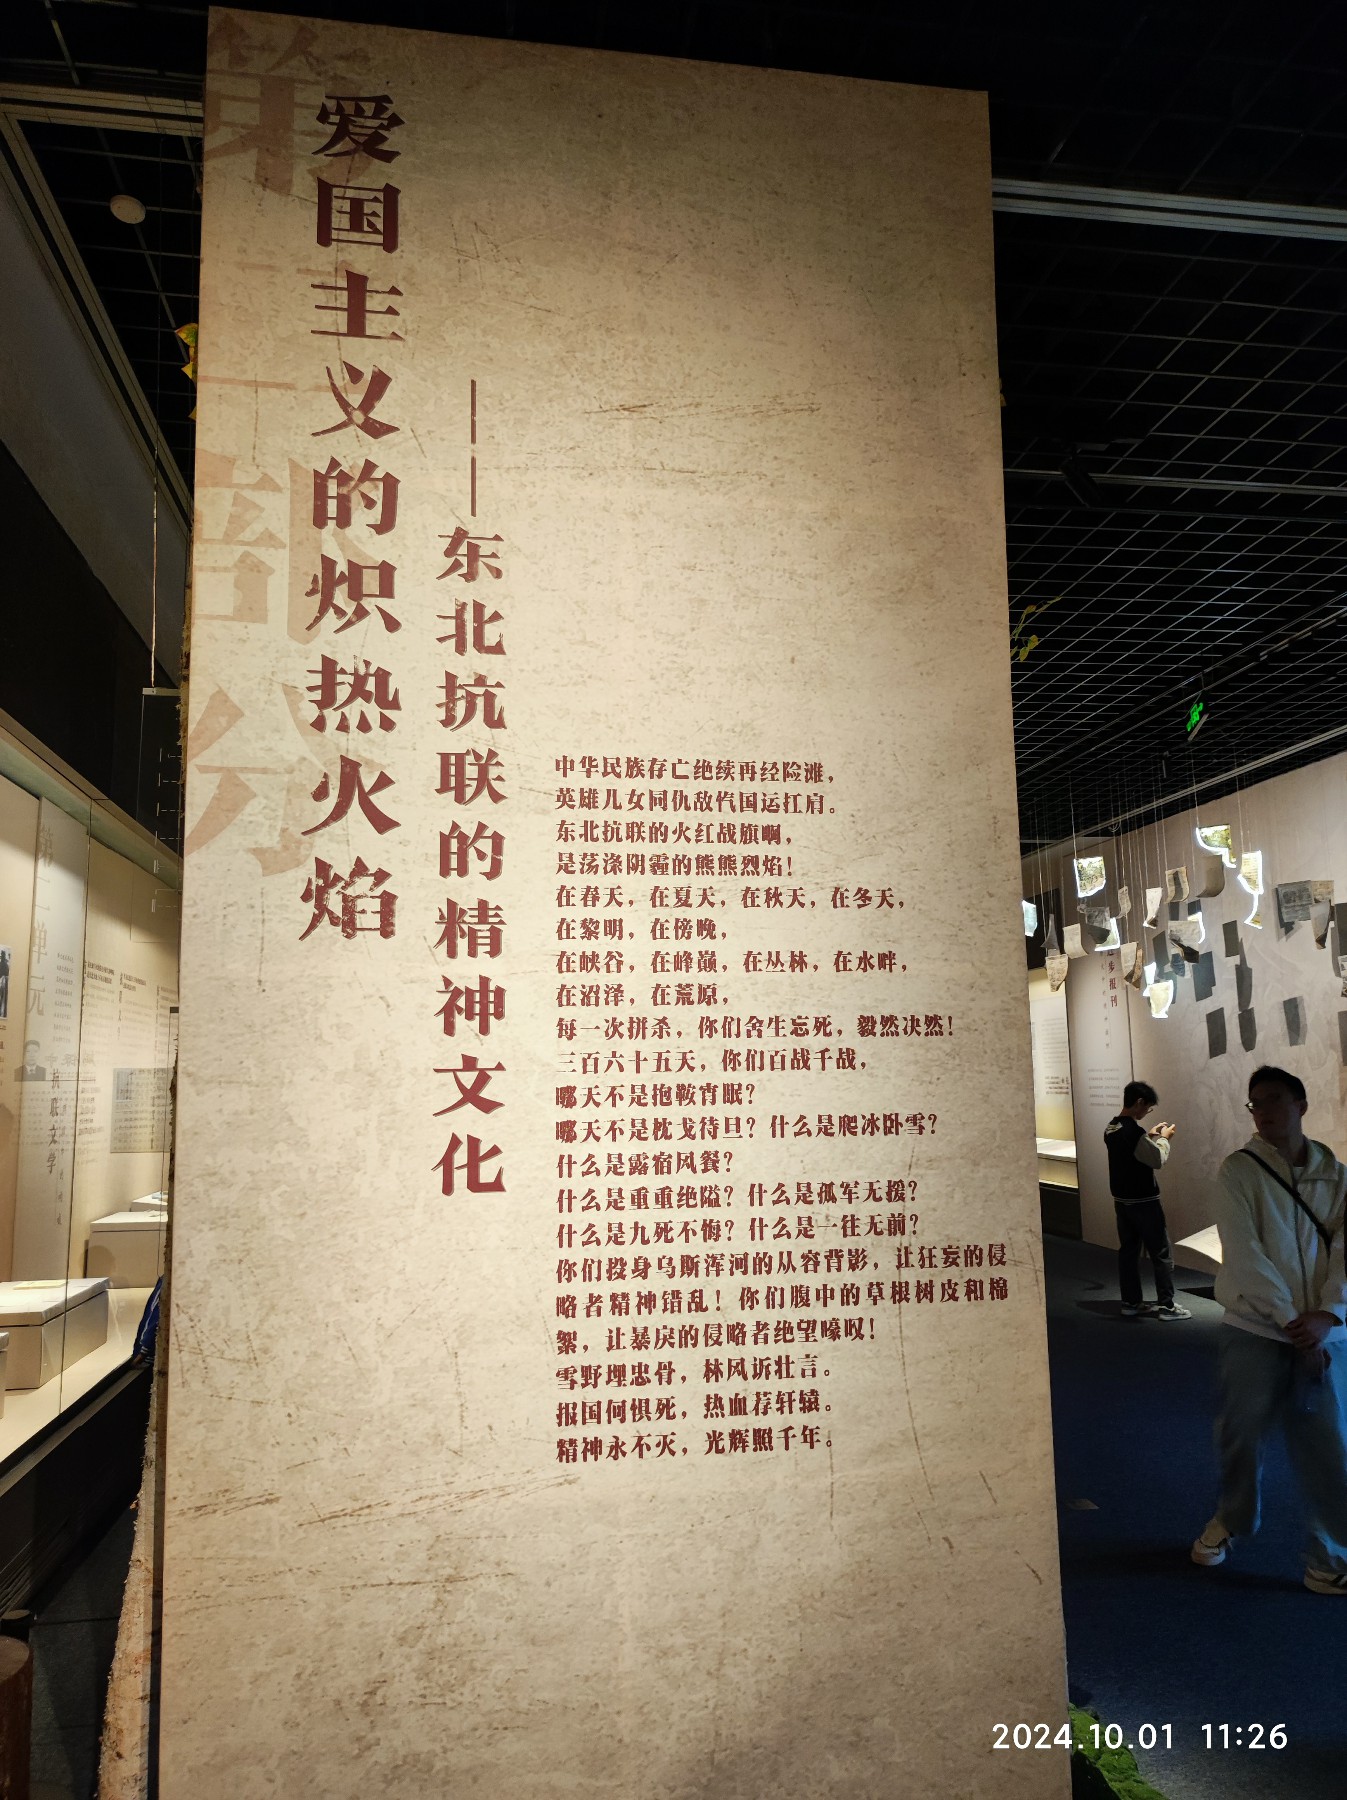 第一部分
爱国主义的炽热火焰
——东北抗联的精神文化
中华民族存亡绝续再经险滩，
英雄儿女同仇敌忾国运扛肩。
东北抗联的火红战旗啊，
是荡涤阴霾的熊熊烈焰！
在春天，在夏天，在秋天，在冬天，
在黎明，在傍晚，
在峡谷，在峰巅，在丛林，在水畔，
在沼泽，在荒原，
每一次拼杀，你们舍生忘死，毅然决然！
三百六十五天，你们百战千战，
哪天不是抱鞍宵眠？
哪天不是枕戈待旦？什么是爬冰卧雪？
什么是露宿风餐？
什么是重重绝隘？什么是孤军无援？
什么是九死不悔？什么是一往无前？
你们投身乌斯浑河的从容背影，让狂妄的侵
略者精神错乱！你们腹中的草根树皮和棉
絮，让暴戾的侵略者绝望嚎叹！
雪野埋忠骨，林风诉壮言。
报国何惧死，热血荐轩辕。
精神永不灭，光辉照千年。
第二单元
抗联文学
进步报刊
2024.10.01 11:26